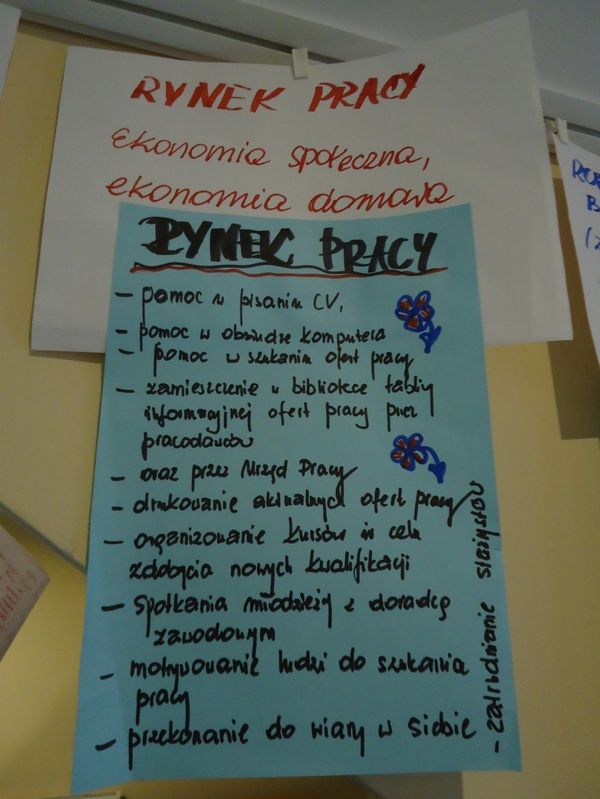 RYNEK PRACY
ekonomia społeczna,
ekonomia domowa
RYNEK PRACY
- pomoc w pisaniu CV,
- pomoc w obsłudze komputera
- pomoc w szukaniu ofert pracy
- zamieszczenie w bibliotece tablicy
informacyjnej ofert pracy przez
pracodawców
- oraz przez Urząd Pracy
- drukowanie aktualnych ofert pracy
- organizowanie kursów w celu
zdobycia nowych kwalifikacji
- spotkania młodzieży z doradcą
zawodowym
- motywowanie ludzi do szukania
pracy
- przekonanie do wiary w siebie
- zatrudnianie stażystów